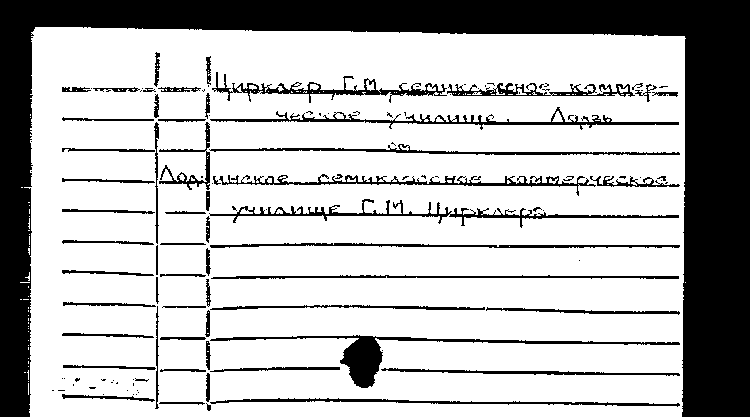 Цирклер, Г.М., семиклассное коммер-
ческое училище. Лодзь
см
Лодзинское семиклассное коммерческое
училище Г.М. Циркlера